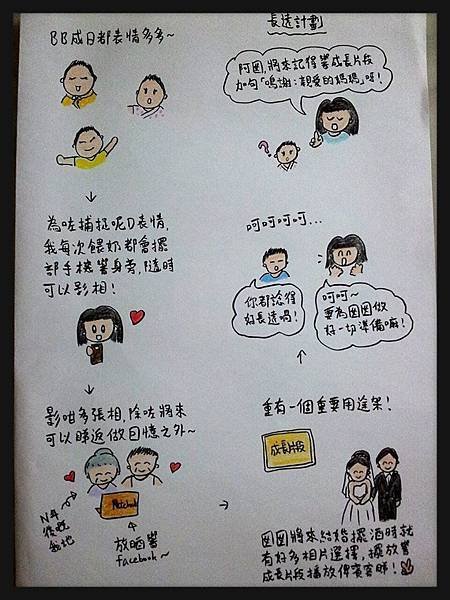 BB成日都表情多多~
為咗捕捉呢D表情,
我每次餵奶都會擺
部手機響身旁,隨時
可以影相!
影咁多張相,除咗將來
可以睇返做回憶之外~
N年
後嘅
我地
放晒響
facebook~
長遠計劃
阿囡,將來記得響成長片段
加句「鳴謝:親愛的媽媽」呀!
?
呵呵呵呵...
你都諗得
好長遠喎!
呵呵~
要為囡囡做
好一切準備嘛!
重有一個重要用途架!
成長片段
囡囡將來結婚擺酒時就
有好多相片選擇,擺放響
成長片段播放俾賓客睇!